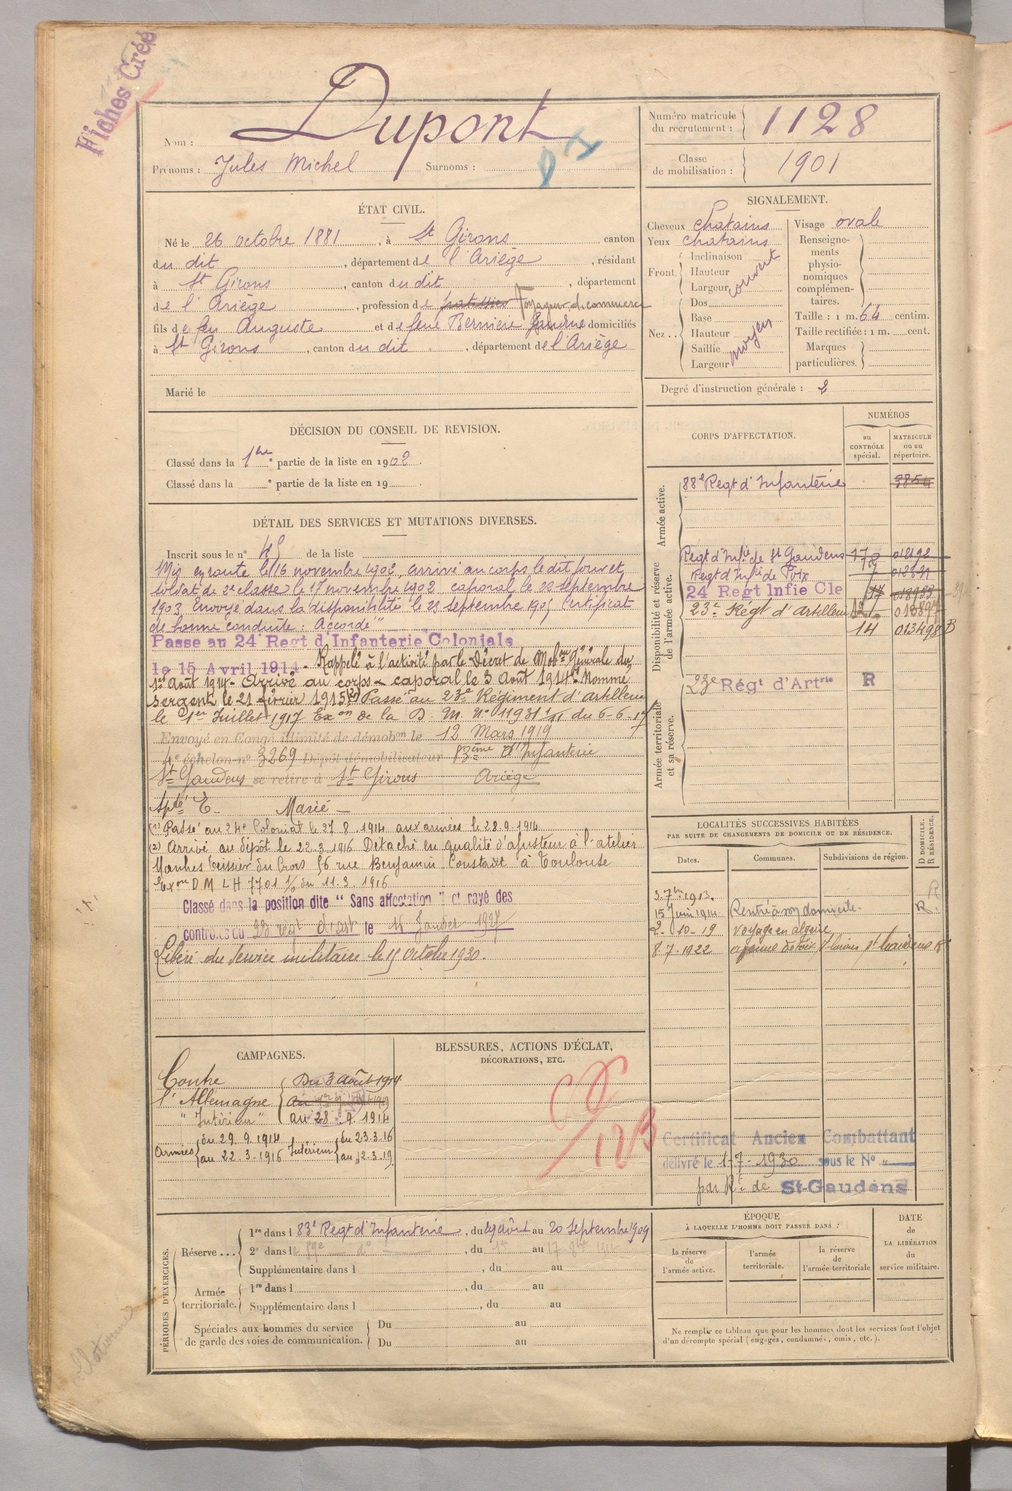 Fiches Créé
Nom : Dupont
Prénoms : Jules Michel Surnoms :
Numéro matricule du recrutement : 1128
Classe de mobilisation : 1901
ÉTAT CIVIL.
Né le 26 octobre 1881, à St Girons canton
du dit, département de l'Ariège, résidant
à St Girons, canton du dit, département
de l'Ariège, profession de Voyageur de commerce
fils de feu Auguste et de feue Bernière domiciliés
à St Girons, canton du dit, département de l'Ariège
Marié le
SIGNALEMENT.
Cheveux chatains
Yeux chatains
Front Inclinaison
Hauteur
Largeur couvert
Nez Dos
Base
Hauteur
Saillie
Largeur moyen
Visage ovale
Renseignements physionomiques complémentaires.
Taille : 1 m. 64 centim.
Taille rectifiée : 1 m. cent.
Marques particulières.
Degré d'instruction générale : 2
DÉCISION DU CONSEIL DE REVISION.
Classé dans la 1ère partie de la liste en 1902.
Classé dans la e partie de la liste en 19
DÉTAIL DES SERVICES ET MUTATIONS DIVERSES.
Inscrit sous le n° 45 de la liste
Mis en route le 16 novembre 1902, arrivé au corps le dit jour et
soldat de 2e classe le 17 novembre 1902 caporal le 20 septembre
1903 Envoyé dans la disponibilité le 21 septembre 1905 Certificat
de bonne conduite : "Accordé"
Passe au 24e Regt d'Infanterie Coloniale
le 15 Avril 1914 - Rappelé à l'activité par le Décret de Mobon Générale du
1er Août 1914 - Arrivé au corps - caporal le 3 Août 1914. Nommé
sergent le 21 février 1915 (2) Passé au 23e Régiment d'artillerie
le 1er Juillet 1917 Exon de la D. M. N° 11931 du 6-6-17
Envoyé en Congé illimité de démobon le 12 Mars 1919
4e échelon n° 3269 Dépôt démobilisateur d'Infanterie
St Gaudens se retire à St Girons Ariège
Marié
(1) Passé au 24e Colonial le 27.8.1914 aux armées le 28.9.1914
(2) Arrivé au dépôt le 22.3.1916 Détaché en qualité d'ajusteur à l'atelier
56 rue Benjamin Constant à Toulouse
Exon D M L H 7701 du 11.3.1916
Classé dans la position dite "Sans affectation" et rayé des
contrôles du Regt d'art le Janvier 1927
Libéré du service militaire le 15 Octobre 1930.
CORPS D'AFFECTATION.
NUMÉROS
au CONTRÔLE spécial.
MATRICULE ou au répertoire.
Armée active.
88e Regt d'Infanterie 3854
Disponibilité et réserve de l'armée active.
Regt d'Infie de St Gaudens
Regt d'Infie de Foix
24 Regt Infie Cle
23e Regt d'artillerie
14 013498 B
Armée territoriale et sa réserve.
23e Régt d'Artrie R
LOCALITÉS SUCCESSIVES HABITÉES
PAR SUITE DE CHANGEMENTS DE DOMICILE OU DE RÉSIDENCE.
Dates. Communes. Subdivisions de région. D DOMICILE, R RÉSIDENCE.
3.7bre 1913 R
15 Juin 1914 Rentré à son domicile R.
2-10-19 voyage en algérie
8-7-1922
CAMPAGNES.
Contre l'Allemagne
Du 3 août 1914
"Intérieur" au 28.9.1914
Armées du 29.9.1914
au 22.3.1916
Intérieur du 23.3.16
au 12.3.19
BLESSURES, ACTIONS D'ÉCLAT,
DÉCORATIONS, ETC.
Certificat Ancien Combattant
délivré le 1-7-1930 sous le N° "
par de St-Gaudens
PÉRIODES D'EXERCICES.
Réserve ... 1re dans l 83e Regt d'Infanterie, du 29 août au 20 Septembre 1909
2e dans l , du 1er au 17
Supplémentaire dans l , du au
Armée territoriale. 1re dans l , du au
Supplémentaire dans l , du au
Spéciales aux hommes du service de garde des voies de communication. Du au
Du au
ÉPOQUE
À LAQUELLE L'HOMME DOIT PASSER DANS :
la réserve de l'armée active.
l'armée territoriale.
la réserve de l'armée territoriale
DATE de LA LIBÉRATION du service militaire.
Ne remplir ce tableau que pour les hommes dont les services font l'objet
d'un décompte spécial (engagés, condamnés, omis, etc.).